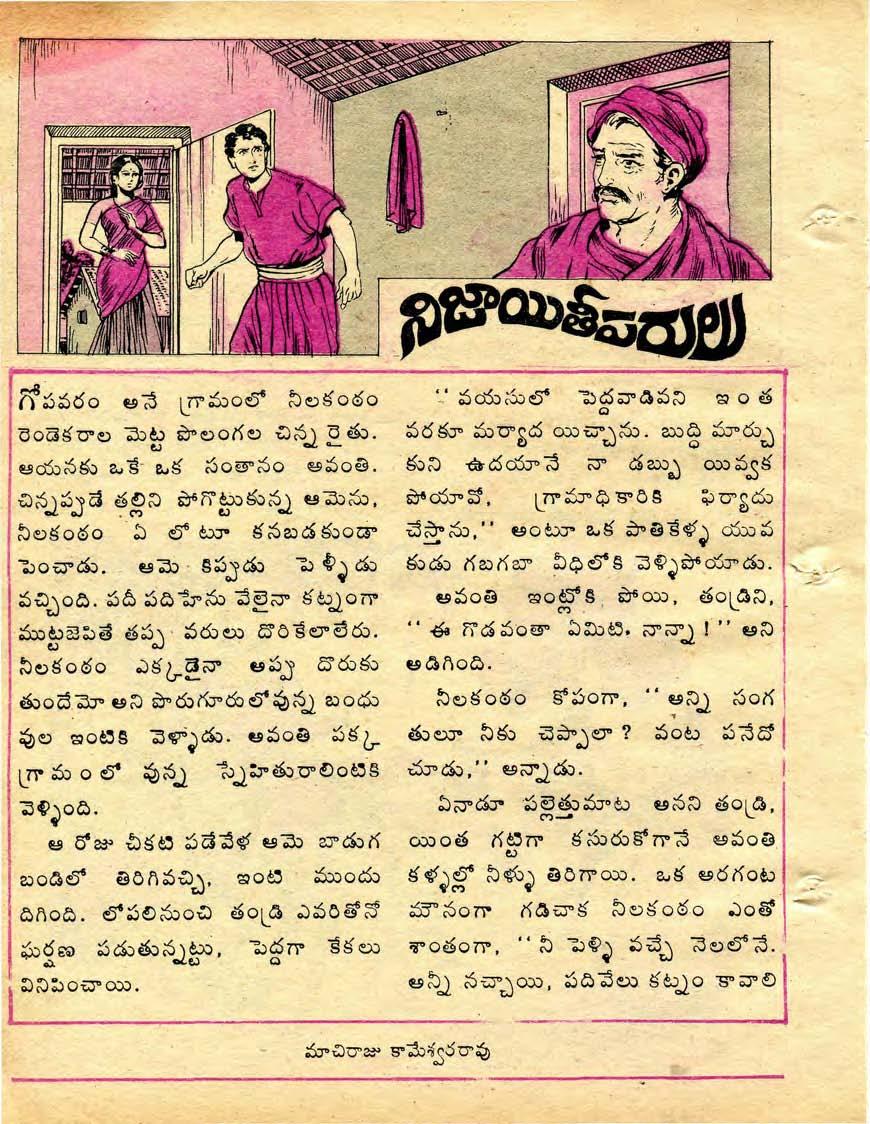 నిజాయితీపరులు
గోపవరం అనే గ్రామంలో నీలకంఠం
రెండెకరాల మెట్ట పొలంగల చిన్న రైతు.
ఆయనకు ఒకే ఒక సంతానం అవంతి.
చిన్నప్పుడే తల్లిని పోగొట్టుకున్న ఆమెను,
నీలకంఠం ఏ లోటూ కనబడకుండా
పెంచాడు. ఆమె కిప్పుడు పెళ్ళీడు
వచ్చింది. పదీ పదిహేను వేలైనా కట్నంగా
ముట్టజెపితే తప్ప వరులు దొరికేలాలేరు.
నీలకంఠం ఎక్కడైనా అప్పు దొరుకు
తుందేమో అని పొరుగూరులోవున్న బంధు
వుల ఇంటికి వెళ్ళాడు. అవంతి పక్క
గ్రామంలో వున్న స్నేహితురాలింటికి
వెళ్ళింది.
ఆ రోజు చీకటి పడేవేళ ఆమె బాడుగ
బండిలో తిరిగివచ్చి, ఇంటి ముందు
దిగింది. లోపలినుంచి తండ్రి ఎవరితోనో
ఘర్షణ పడుతున్నట్టు, పెద్దగా కేకలు
వినిపించాయి.
‘‘వయసులో పెద్దవాడివని ఇంత
వరకూ మర్యాద యిచ్చాను. బుద్ధి మార్చు
కుని ఉదయానే నా డబ్బు యివ్వక
పోయావో, గ్రామాధికారికి ఫిర్యాదు
చేస్తాను,’’ అంటూ ఒక పాతికేళ్ళ యువ
కుడు గబగబా వీధిలోకి వెళ్ళిపోయాడు.
అవంతి ఇంట్లోకి పోయి, తండ్రిని,
‘‘ఈ గొడవంతా ఏమిటి, నాన్నా!’’ అని
అడిగింది.
నీలకంఠం కోపంగా, ‘‘అన్ని సంగ
తులూ నీకు చెప్పాలా? వంట పనేదో
చూడు,’’ అన్నాడు.
ఏనాడూ పల్లెత్తుమాట అనని తండ్రి,
యింత గట్టిగా కసురుకోగానే అవంతి
కళ్ళల్లో నీళ్ళు తిరిగాయి. ఒక అరగంట
మౌనంగా గడిచాక నీలకంఠం ఎంతో
శాంతంగా, ‘‘నీ పెళ్ళి వచ్చే నెలలోనే.
అన్నీ నచ్చాయి, పదివేలు కట్నం కావాలి
మాచిరాజు కామేశ్వరరావు